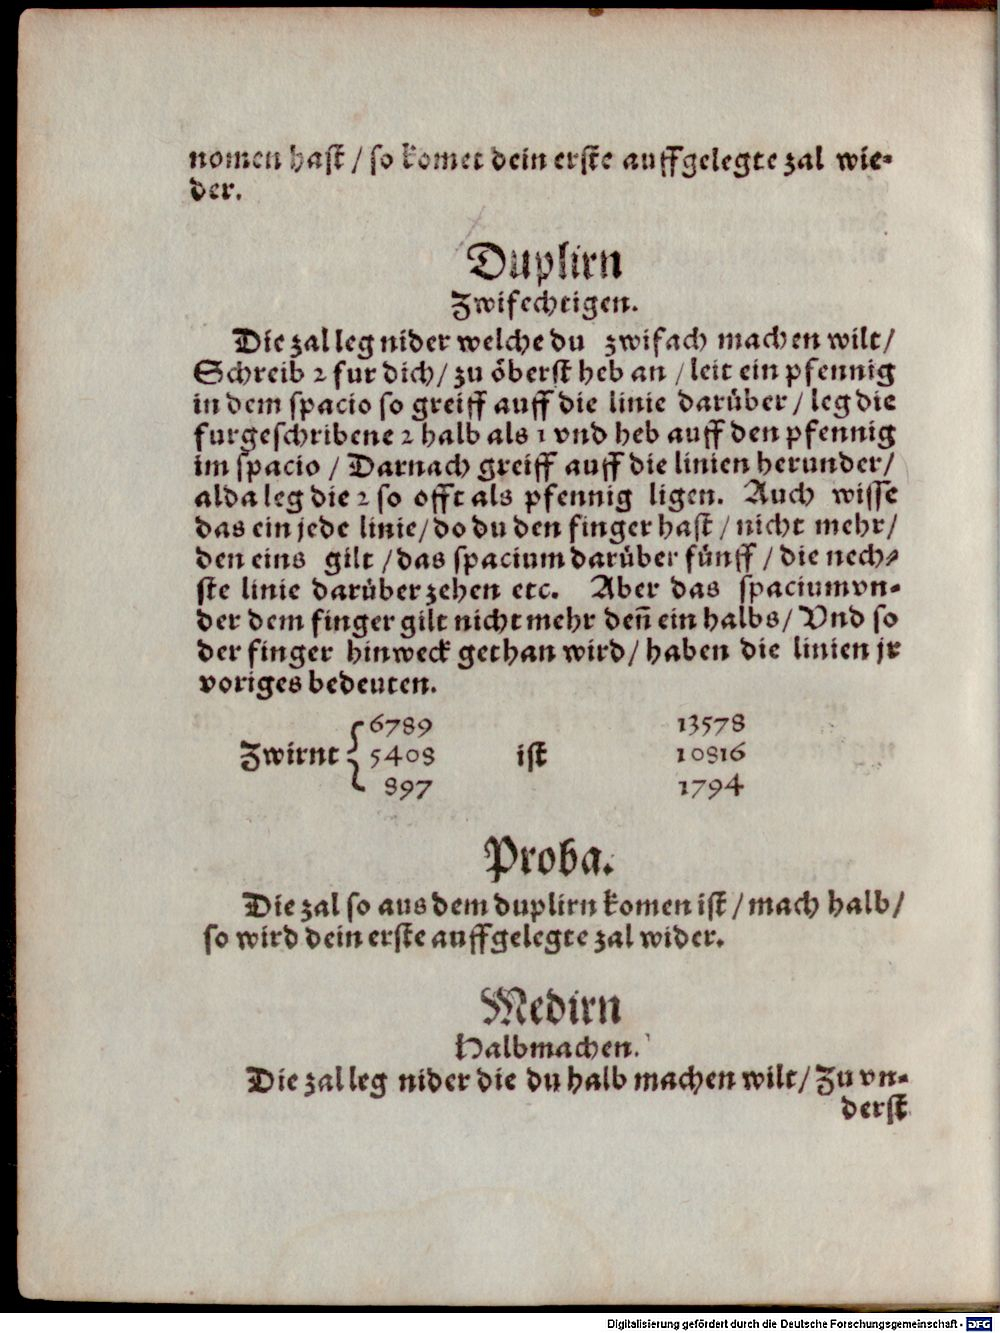 nomen hast / so komet dein erste auffgelegte zal wie-
der.
Duplirn
Zwifechtigen.
Die zal leg nider welche du zwifach machen wilt/
Schreib 2 fur dich/ zu öberst heb an / leit ein pfennig
in dem spacio so greiff auff die linie darüber / leg die
furgeschribene 2 halb als 1 vnd heb auff den pfennig
im spacio / Darnach greiff auff die linien herunder/
alda leg die 2 so offt als pfennig ligen. Auch wisse
das ein jede linie/ do du den finger hast / nicht mehr/
den eins gilt / das spacium darüber fünff / die nech-
ste linie darüber zehen etc. Aber das spacium vn-
der dem finger gilt nicht mehr deñ ein halbs/ Vnd so
der finger hinweck gethan wird/ haben die linien jr
voriges bedeuten.
Zwirnt { 6789 13578
5408 ist 10816
897 1794
Proba.
Die zal so aus dem duplirn komen ist / mach halb/
so wird dein erste auffgelegte zal wider.
Medirn
Halbmachen.
Die zal leg nider die du halb machen wilt/ Zu vn-
derst
Digitalisierung gefördert durch die Deutsche Forschungsgemeinschaft - DFG